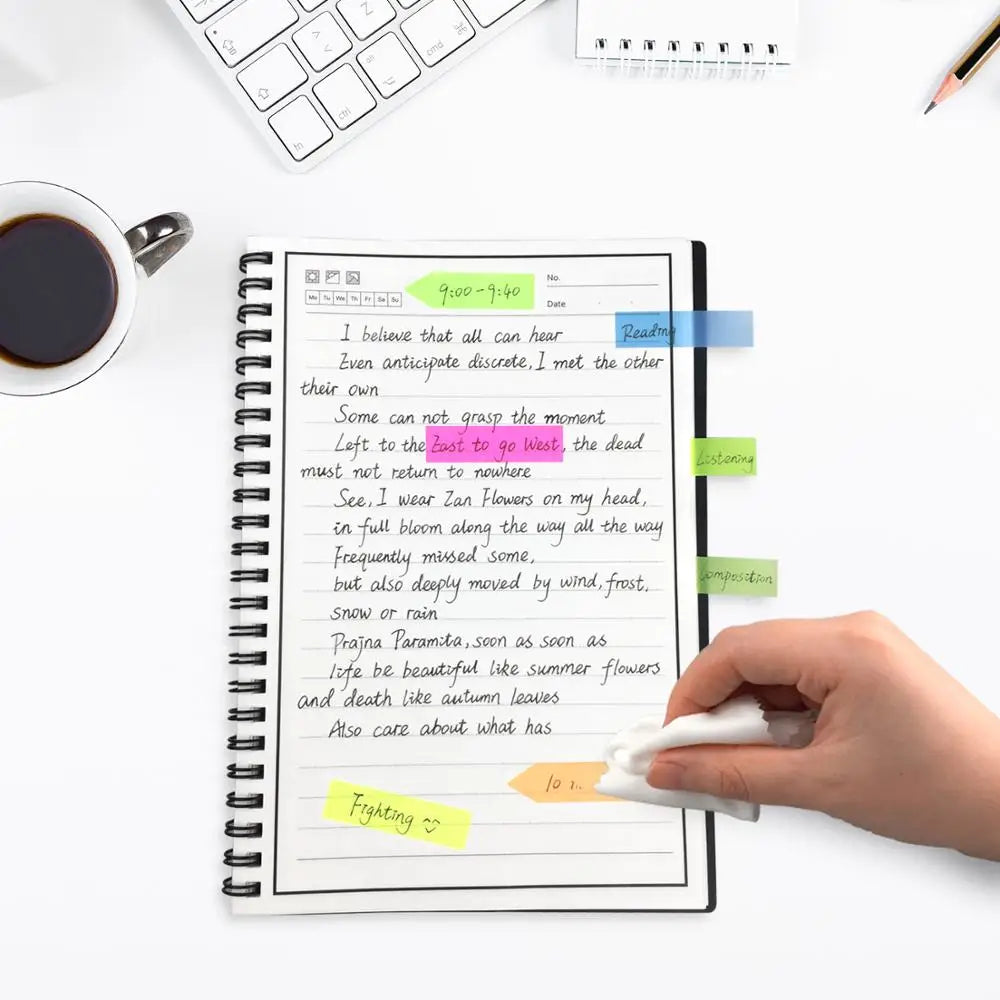 Z
fn
ctrl
alt
cmd
No.
Mo Tu We Th Fr Sa Su
9:00-9:40
Date
I believe that all can hear
Reading
Even anticipate discrete, I met the other
their own
Some can not grasp the moment
Left to the East to go West, the dead
must not return to nowhere
Listening
See, I wear Zan Flowers on my head,
in full bloom along the way all the way
Frequently missed some,
but also deeply moved by wind, frost,
Composition
snow or rain
Prajna Paramita, soon as soon as
life be beautiful like summer flowers
and death like autumn leaves
Also care about what has
10
Fighting